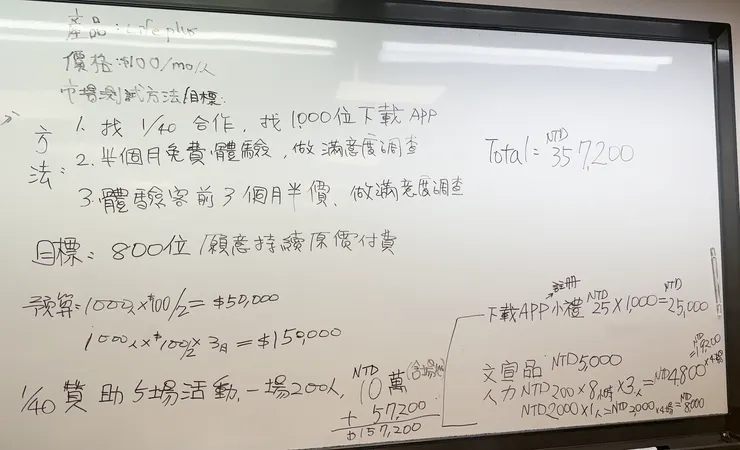 產品: Lifeplus
價格: $100/mo/人
市場測試方法/目標:
方法:
1. 找 1/40 合作, 找1,000位下載 APP
2. 半個月免費體驗, 做滿意度調查
3. 體驗客前3個月半價, 做滿意度調查
目標: 800位 願意持續原價付費
預算: 1000人×$100/2 = $50,000
1000人×$100/2 × 3月 = $150,000
1/40 贊助5場活動, 一場200人,
NTD 10萬 (含場地)
+ 57,200
$157,200
Total = NTD 357,200
註冊
下載APP小禮 NTD 25 × 1,000 = NTD 25,000
文宣品 NTD 5,000
人力 NTD 200 × 8小時 × 3人 = NTD 4,800 ×4場
= NTD 19,200
NTD 2000 × 1人 = NTD 2,000 ×4場 = NTD 8,000